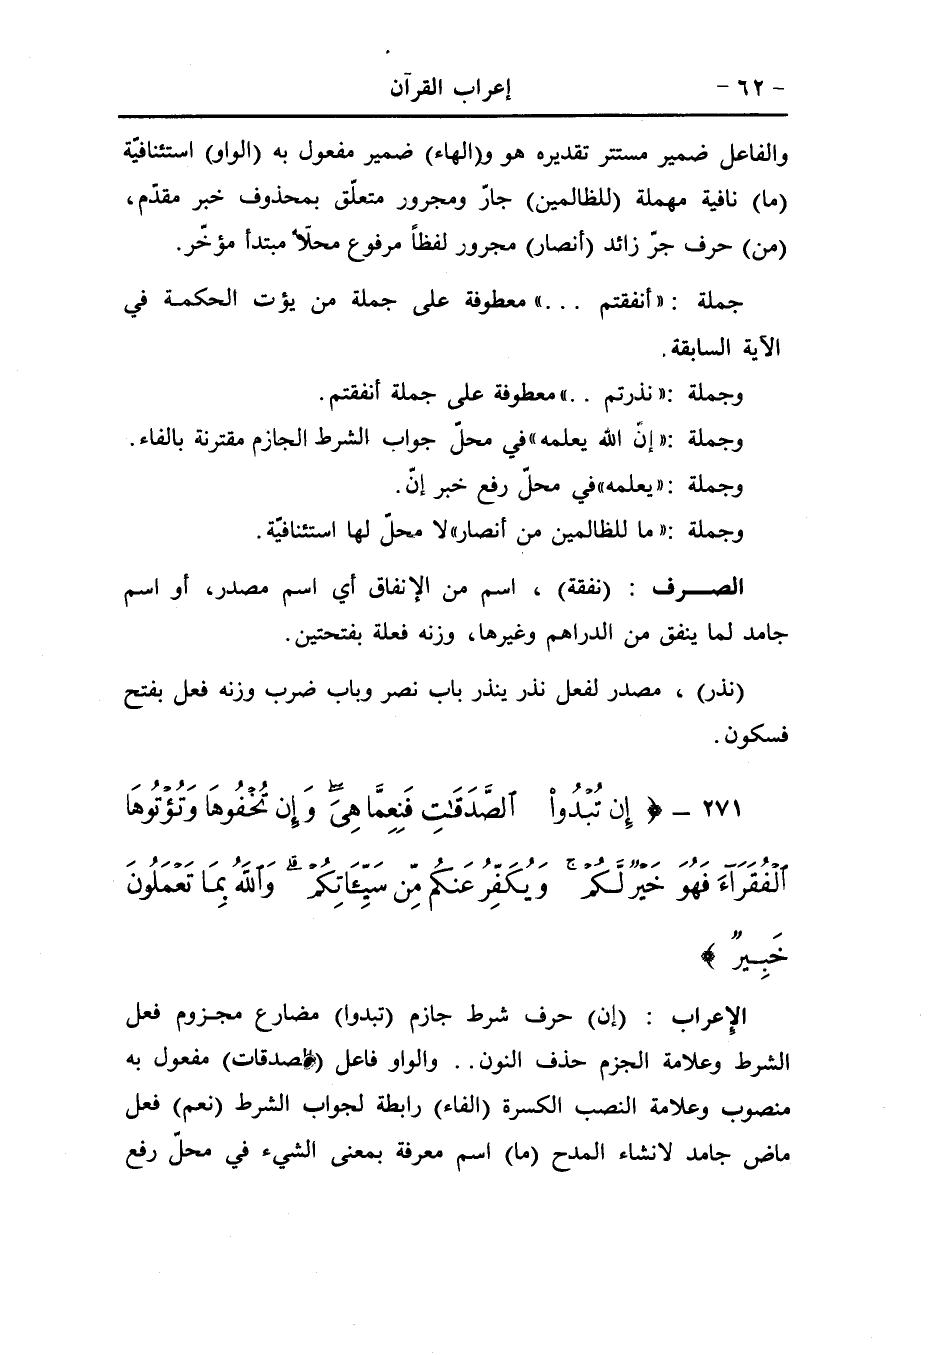 - ٦٢ - إعراب القرآن
والفاعل ضمير مستتر تقديره هو و(الهاء) ضمير مفعول به (الواو) استئنافيّة
(ما) نافية مهملة (للظالمين) جارّ ومجرور متعلّق بمحذوف خبر مقدّم،
(من) حرف جرّ زائد (أنصار) مجرور لفظاً مرفوع محلّاً مبتدأ مؤخّر.
جملة :« أنفقتم ...» معطوفة على جملة من يؤت الحكمـة في
الآية السابقة.
وجملة :« نذرتم ..» معطوفة على جملة أنفقتم.
وجملة :« إنّ الله يعلمه» في محلّ جواب الشرط الجازم مقترنة بالفاء.
وجملة :« يعلمه» في محلّ رفع خبر إنّ.
وجملة :« ما للظالمين من أنصار» لا محلّ لها استئنافيّة.
الصـــرف : (نفقة) ، اسم من الإنفاق أي اسم مصدر، أو اسم
جامد لما ينفق من الدراهم وغيرها، وزنه فعلة بفتحتين.
(نذر) ، مصدر لفعل نذر ينذر باب نصر وباب ضرب وزنه فعل بفتح
فسكون.
٢٧١ - ﴿ إِن تُبْدُواْ ٱلصَّدَقَٰتِ فَنِعِمَّا هِىَ ۖ وَإِن تُخْفُوهَا وَتُؤْتُوهَا
ٱلْفُقَرَآءَ فَهُوَ خَيْرٌ لَّكُمْ ۚ وَيُكَفِّرُ عَنكُم مِّن سَيِّـَٔاتِكُمْ ۗ وَٱللَّهُ بِمَا تَعْمَلُونَ
خَبِيرٌ ﴾
الإعراب : (إن) حرف شرط جازم (تبدوا) مضارع مجـزوم فعل
الشرط وعلامة الجزم حذف النون.. والواو فاعل (الصدقات) مفعول به
منصوب وعلامة النصب الكسرة (الفاء) رابطة لجواب الشرط (نعم) فعل
ماض جامد لانشاء المدح (ما) اسم معرفة بمعنى الشيء في محلّ رفع